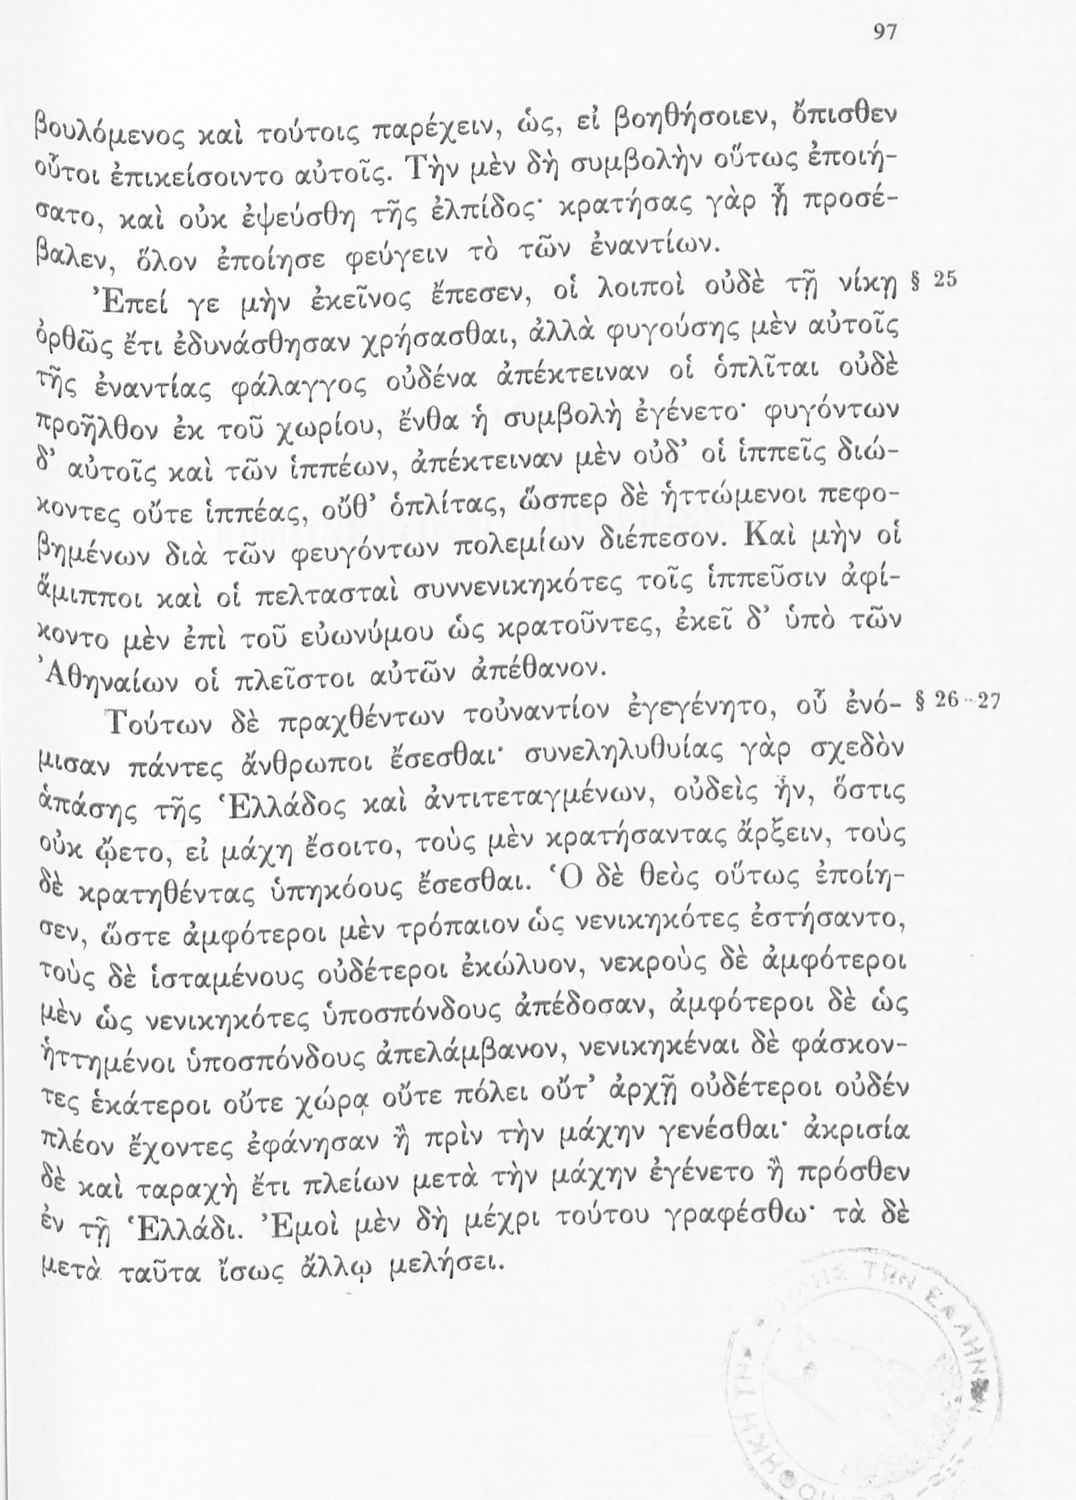 97
βουλόμενος καὶ τούτοις παρέχειν, ὡς, εἰ βοηθήσοιεν, ὄπισθεν
οὗτοι ἐπικείσοιντο αὐτοῖς. Τὴν μὲν δὴ συμβολὴν οὕτως ἐποιή-
σατο, καὶ οὐκ ἐψεύσθη τῆς ἐλπίδος· κρατήσας γὰρ ᾗ προσέ-
βαλεν, ὅλον ἐποίησε φεύγειν τὸ τῶν ἐναντίων.
Ἐπεί γε μὴν ἐκεῖνος ἔπεσεν, οἱ λοιποὶ οὐδὲ τῇ νίκῃ § 25
ὀρθῶς ἔτι ἐδυνάσθησαν χρήσασθαι, ἀλλὰ φυγούσης μὲν αὐτοῖς
τῆς ἐναντίας φάλαγγος οὐδένα ἀπέκτειναν οἱ ὁπλῖται οὐδὲ
προῆλθον ἐκ τοῦ χωρίου, ἔνθα ἡ συμβολὴ ἐγένετο· φυγόντων
δ' αὐτοῖς καὶ τῶν ἱππέων, ἀπέκτειναν μὲν οὐδ' οἱ ἱππεῖς διώ-
κοντες οὔτε ἱππέας, οὔθ' ὁπλίτας, ὥσπερ δὲ ἡττώμενοι πεφο-
βημένων διὰ τῶν φευγόντων πολεμίων διέπεσον. Καὶ μὴν οἱ
ἅμιπποι καὶ οἱ πελτασταὶ συννενικηκότες τοῖς ἱππεῦσιν ἀφί-
κοντο μὲν ἐπὶ τοῦ εὐωνύμου ὡς κρατοῦντες, ἐκεῖ δ' ὑπὸ τῶν
Ἀθηναίων οἱ πλεῖστοι αὐτῶν ἀπέθανον.
Τούτων δὲ πραχθέντων τοὐναντίον ἐγεγένητο, οὗ ἐνό- § 26-27
μισαν πάντες ἄνθρωποι ἔσεσθαι· συνεληλυθυίας γὰρ σχεδὸν
ἁπάσης τῆς Ἑλλάδος καὶ ἀντιτεταγμένων, οὐδεὶς ἦν, ὅστις
οὐκ ᾤετο, εἰ μάχη ἔσοιτο, τοὺς μὲν κρατήσαντας ἄρξειν, τοὺς
δὲ κρατηθέντας ὑπηκόους ἔσεσθαι. Ὁ δὲ θεὸς οὕτως ἐποίη-
σεν, ὥστε ἀμφότεροι μὲν τρόπαιον ὡς νενικηκότες ἐστήσαντο,
τοὺς δὲ ἱσταμένους οὐδέτεροι ἐκώλυον, νεκροὺς δὲ ἀμφότεροι
μὲν ὡς νενικηκότες ὑποσπόνδους ἀπέδοσαν, ἀμφότεροι δὲ ὡς
ἡττημένοι ὑποσπόνδους ἀπελάμβανον, νενικηκέναι δὲ φάσκον-
τες ἑκάτεροι οὔτε χώρᾳ οὔτε πόλει οὔτ' ἀρχῇ οὐδέτεροι οὐδέν
πλέον ἔχοντες ἐφάνησαν ἢ πρὶν τὴν μάχην γενέσθαι· ἀκρισία
δὲ καὶ ταραχὴ ἔτι πλείων μετὰ τὴν μάχην ἐγένετο ἢ πρόσθεν
ἐν τῇ Ἑλλάδι. Ἐμοὶ μὲν δὴ μέχρι τούτου γραφέσθω· τὰ δὲ
μετὰ ταῦτα ἴσως ἄλλῳ μελήσει.
ΤΩΝ ΕΛΛΗΝΩΝ